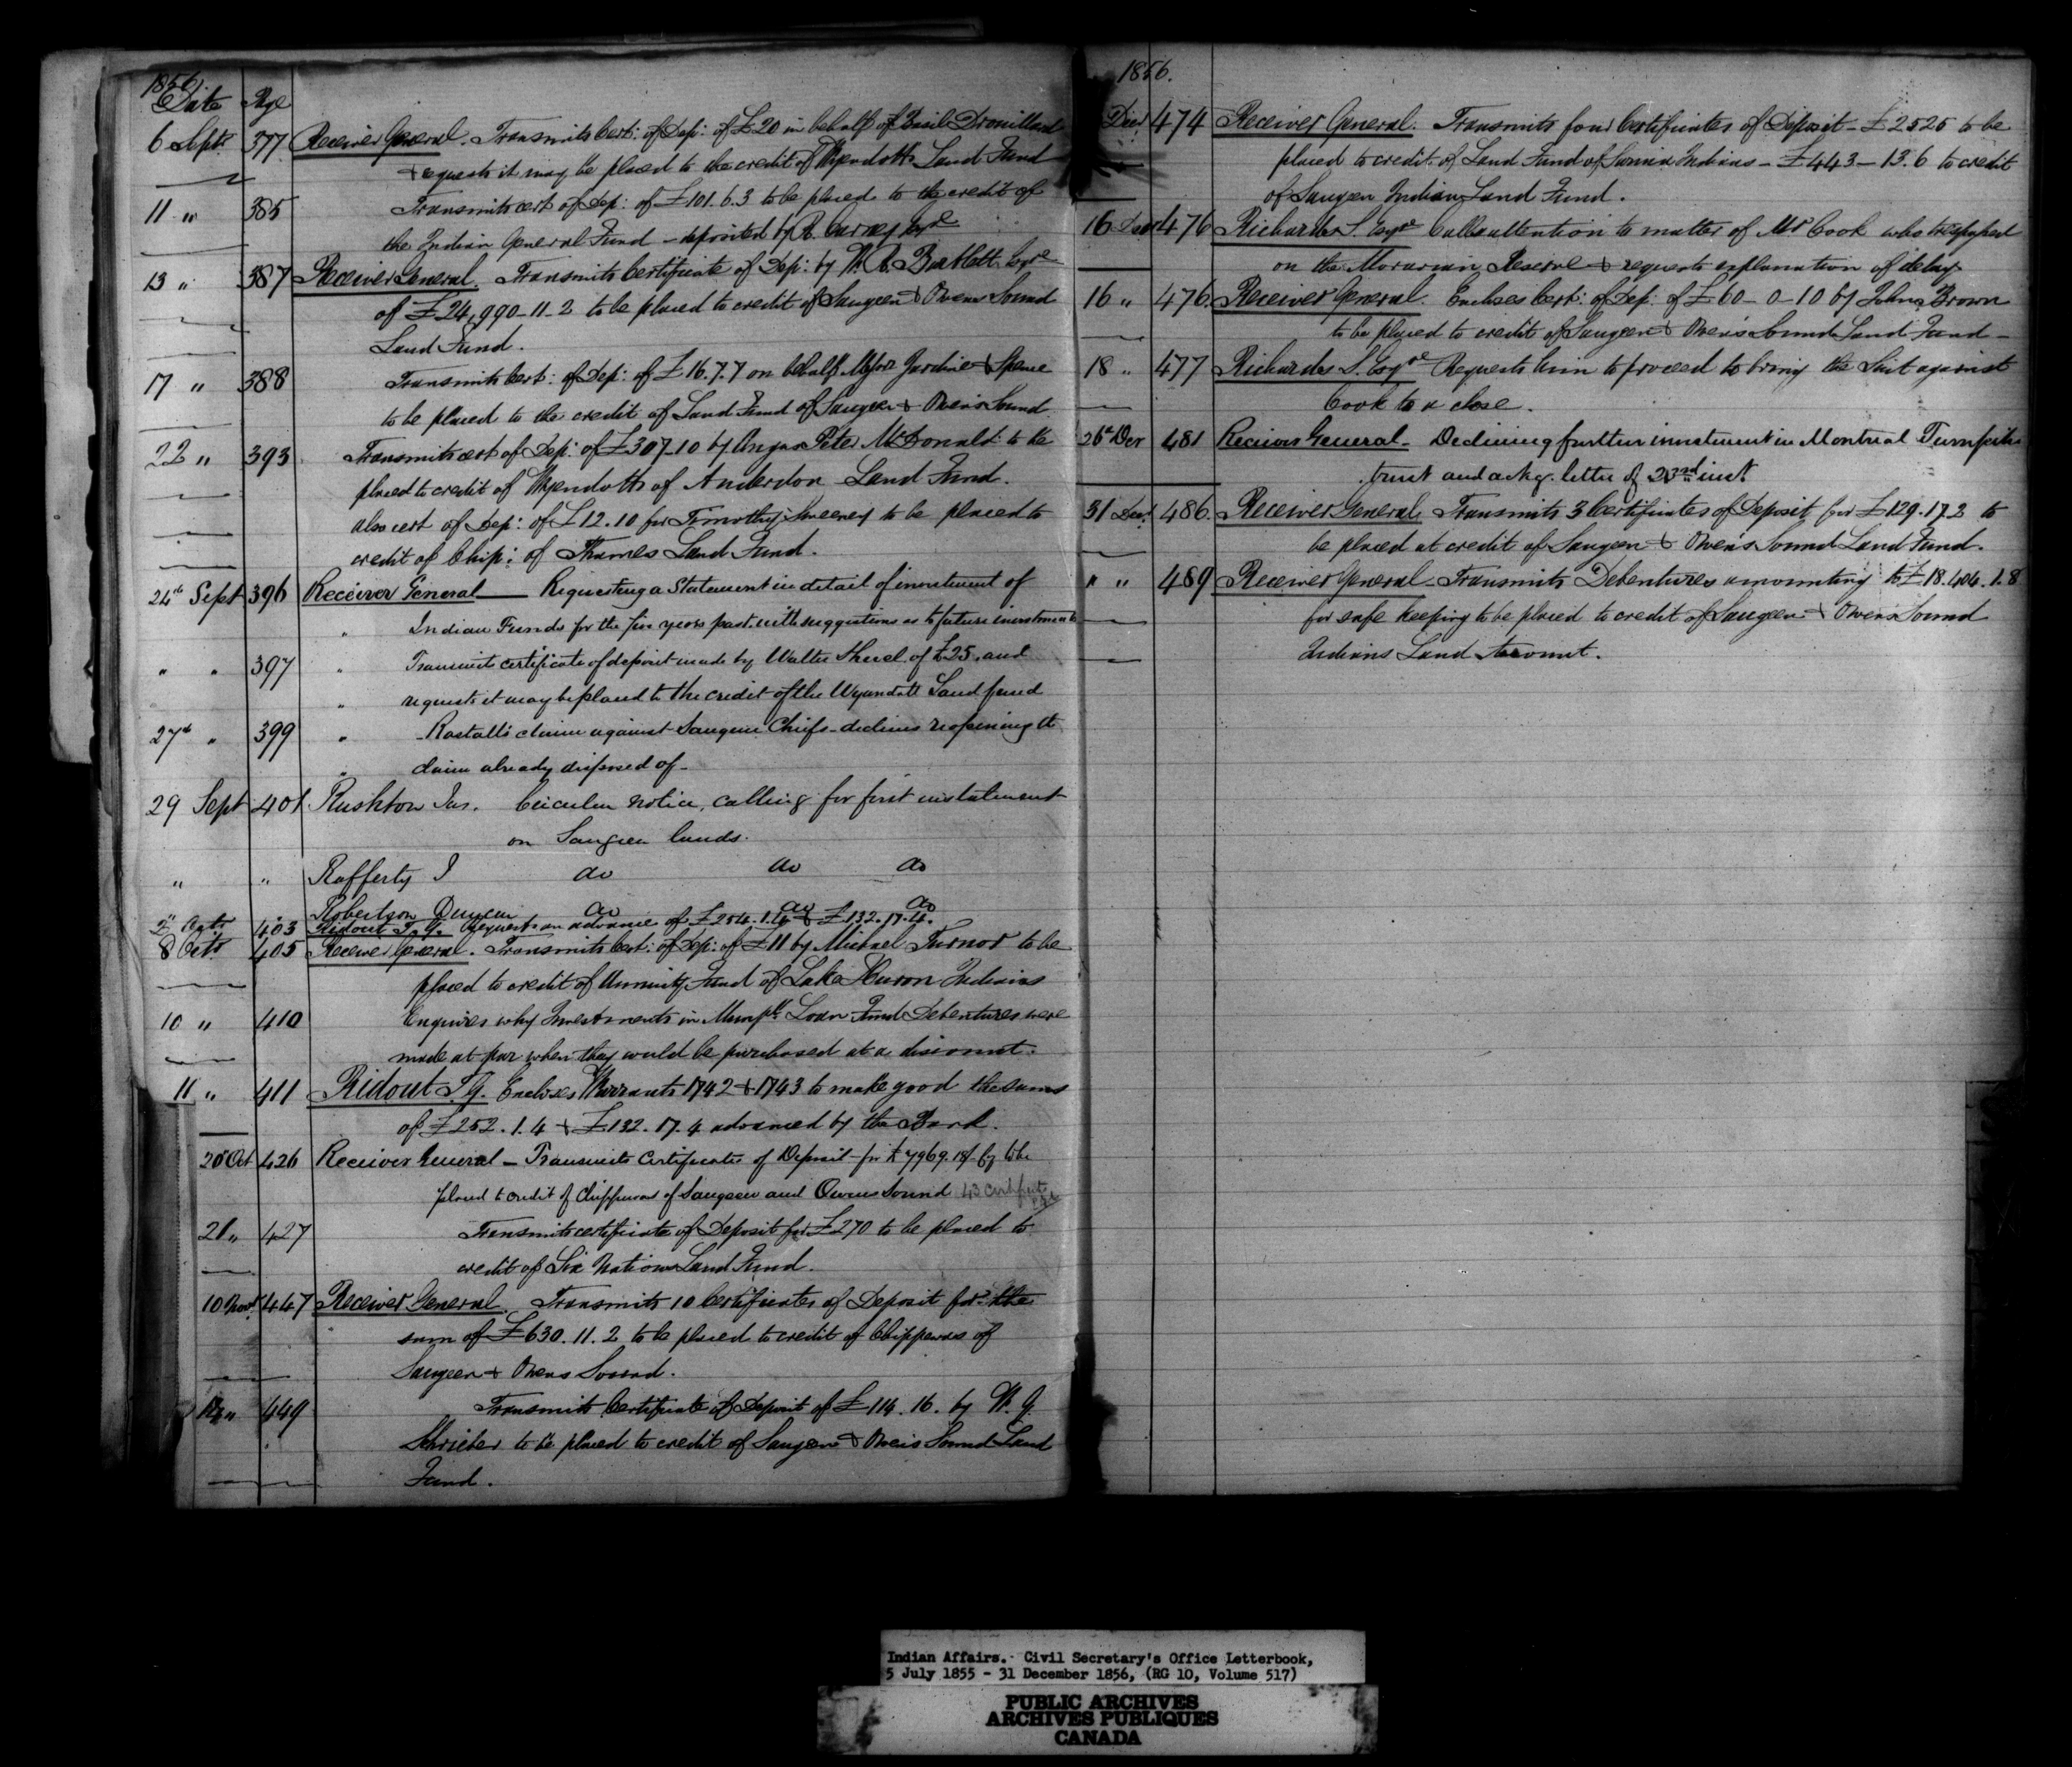 1856
Date Page
6 Septr 377 Receiver General. Transmits Cert: of Dep: of £20 in behalf of Basil Drouillard
& requests it may be placed to the credit of Wyendotts Land Fund
11 " 385 Transmits cert of Dep: of £101.6.3 to be placed to the credit of
the Indian General Fund - deposited by R. Carney Esqre
13 " 387 Receiver General. Transmits Certificate of Dep: by W. R. Bartlett Esqre
of £24,990-11-2 to be placed to credit of Saugeen & Owens Sound
Land Fund.
17 " 388 Transmits Cert: of Dep: of £16.7.7 on behalf Messrs Jardine & Spence
to be placed to the credit of Land Fund of Saugeen & Owen's Sound
22 " 393 Transmits cert of Dep: of £307-10 by Angus Peter McDonald to be
placed to credit of Wyendotts of Anderdon Land Fund.
also cert of Dep: of £12.10 for Timothy Sweeney to be placed to
credit of Chip: of Thames Land Fund.
24th Sept 396 Receiver General — Requesting a Statement in detail of investment of
" Indian Funds for the five years past with suggestions as to future investments
" " 397 " Transmits certificate of deposit made by Walter of £25, and
" requests it may be placed to the credit of the Wyandott Land fund
27th " 399 " Rastall's claim against Saugeen Chiefs - declines reopening the
" claim already disposed of -
29 Sept 401 Rushton Jas. Circular notice, calling for first instalment
on Saugeen lands.
" " Rafferty J do do do
" " Robertson Duncan do do do
2 Octr 403 Ridout T. G. Requests an advance of £254.1.4 & £132.17.4.
8 Octr 405 Receiver General. Transmits Cert: of Dep: of £11 by Michael Turnor to be
placed to credit of Annuity Fund of Lake Huron Indians
10 " 410 Enquires why Investments in Loan Fund Debentures were
made at par when they could be purchased at a discount.
11 " 411 Ridout T. G. Encloses Warrants 1742 & 1743 to make good the sums
of £252.1.4 & £132.17.4 advanced by the Bank.
20 Oct 426 Receiver General - Transmits Certificates of Deposit for £7969.18/- to be
placed to credit of Chippewas of Saugeen and Owens Sound 43
21 " 427 Transmits certificate of Deposit for £270 to be placed to
credit of Six Nations Land Fund.
10 Novr 447 Receiver General. Transmits 10 Certificates of Deposit for the
sum of £630.11.2 to be placed to credit of Chippewas of
Saugeen & Owens Sound.
" 449 Transmits Certificate of Deposit of £114.16. by W. G.
Schrieber to be placed to credit of Saugeen & Owens Sound Land
Fund.
1856.
Decr 474 Receiver General. Transmits four Certificates of Deposit - £2525 to be
placed to credit of Land Fund of Sarnia Indians - £443-13.6 to credit
of Saugeen Indian Land Fund.
16 Decr 476 Richards S. Esqre Calls attention to matter of Mr Cook who trespassed
on the Moravian Reserve & requests explanation of delay
16 " 476. Receiver General. Encloses Cert: of Dep: of £60-0-10 by John Brown
to be placed to credit of Saugeen & Owen's Sound Land Fund -
18 " 477 Richards S. Esqre Requests him to proceed to bring the Suit against
Cook to a close.
26th Decr 481 Receiver General - Declining further investment in Montreal Turnpike
trust and ackg. letter of 23rd inst.
31 Decr 486. Receiver General. Transmits 3 Certificates of Deposit for £129.17.2 to
be placed at credit of Saugeen & Owen's Sound Land Fund.
" " 489 Receiver General - Transmits Debentures amounting to £18.404.1.8
for safe keeping to be placed to credit of Saugeen & Owens Sound
Indians Land Account.
Indian Affairs. Civil Secretary's Office Letterbook,
5 July 1855 - 31 December 1856, (RG 10, Volume 517)
PUBLIC ARCHIVES
ARCHIVES PUBLIQUES
CANADA